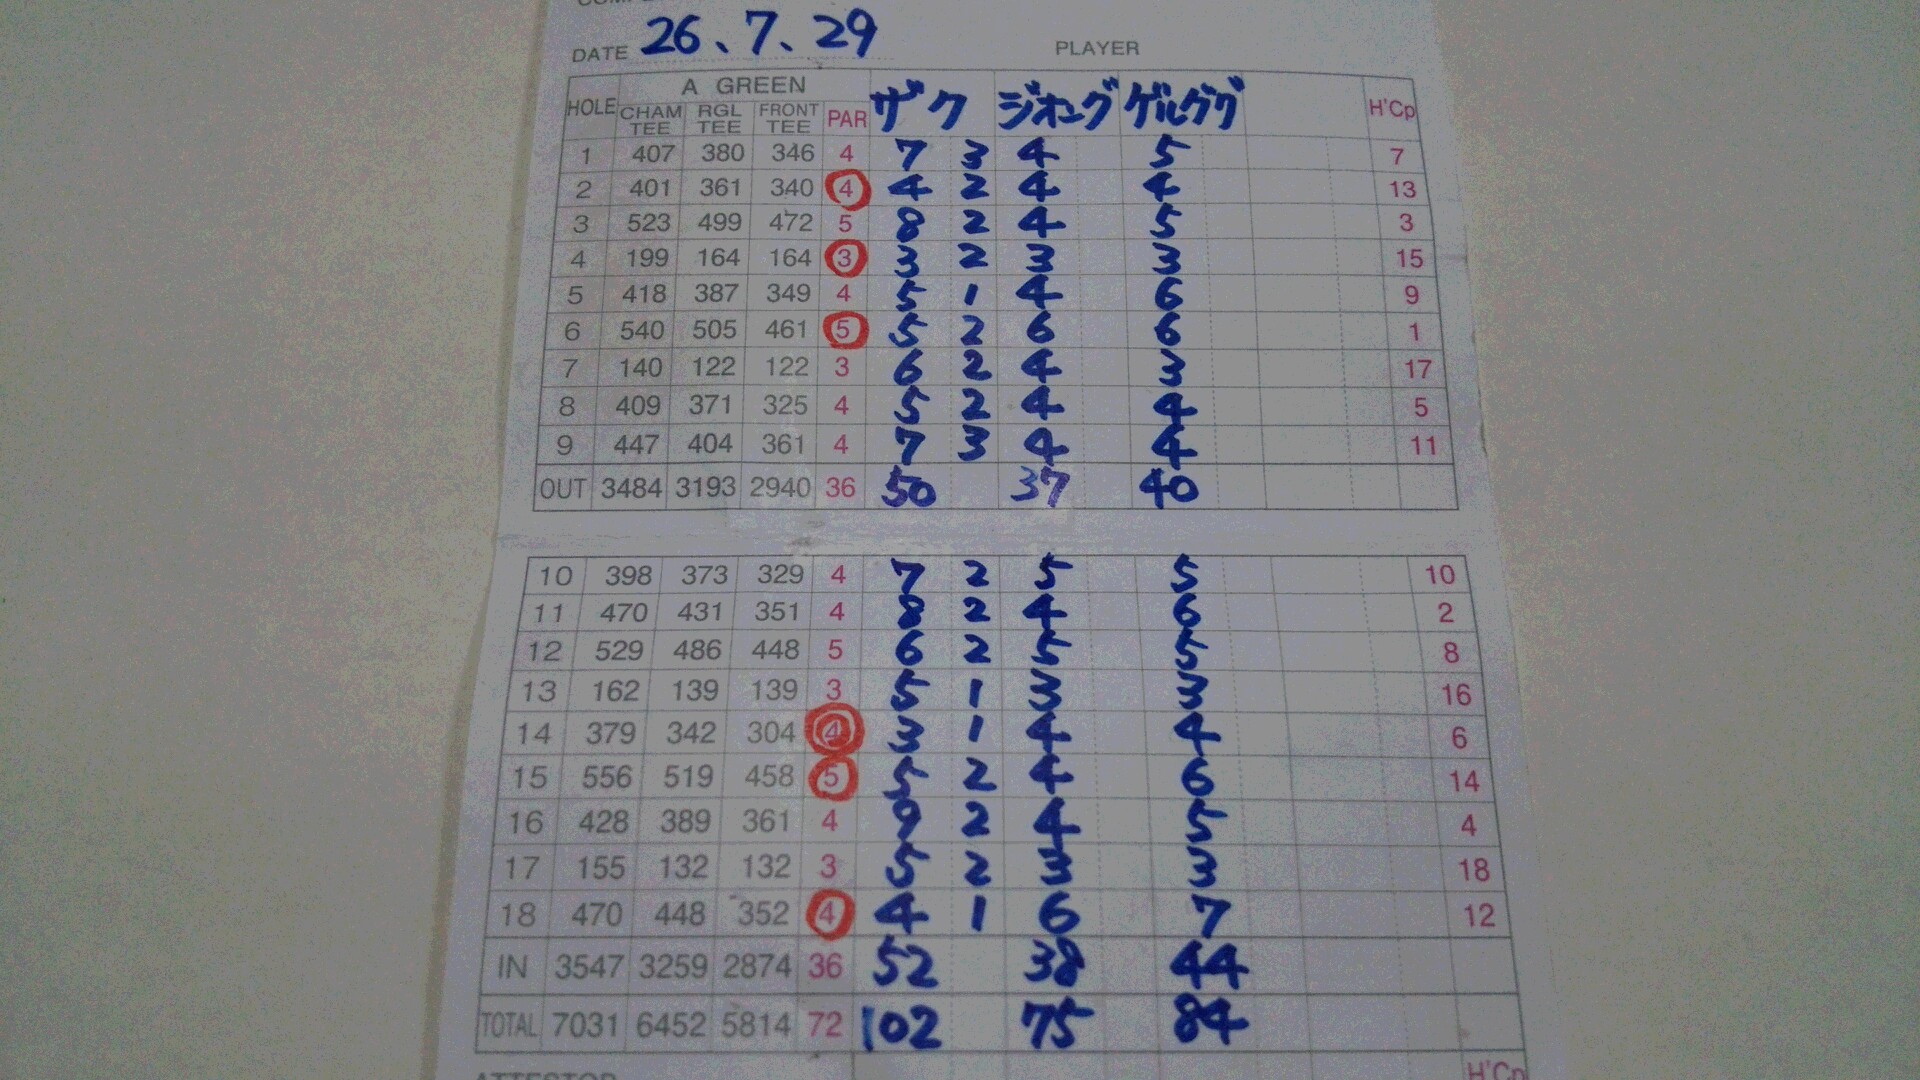 DATE 26、7、29 PLAYER
HOLE A GREEN ザク ジオング ゲルググ H'Cp
CHAM TEE RGL TEE FRONT TEE PAR
1 407 380 346 4 7 3 4 5 7
2 401 361 340 4 4 2 4 4 13
3 523 499 472 5 8 2 4 5 3
4 199 164 164 3 3 2 3 3 15
5 418 387 349 4 5 1 4 6 9
6 540 505 461 5 5 2 6 6 1
7 140 122 122 3 6 2 4 3 17
8 409 371 325 4 5 2 4 4 5
9 447 404 361 4 7 3 4 4 11
OUT 3484 3193 2940 36 50 37 40
10 398 373 329 4 7 2 5 5 10
11 470 431 351 4 8 2 4 6 2
12 529 486 448 5 6 2 5 5 8
13 162 139 139 3 5 1 3 3 16
14 379 342 304 4 3 1 4 4 6
15 556 519 458 5 5 2 4 6 14
16 428 389 361 4 9 2 4 5 4
17 155 132 132 3 5 2 3 3 18
18 470 448 352 4 4 1 6 7 12
IN 3547 3259 2874 36 52 38 44
TOTAL 7031 6452 5814 72 102 75 84
H'Cp